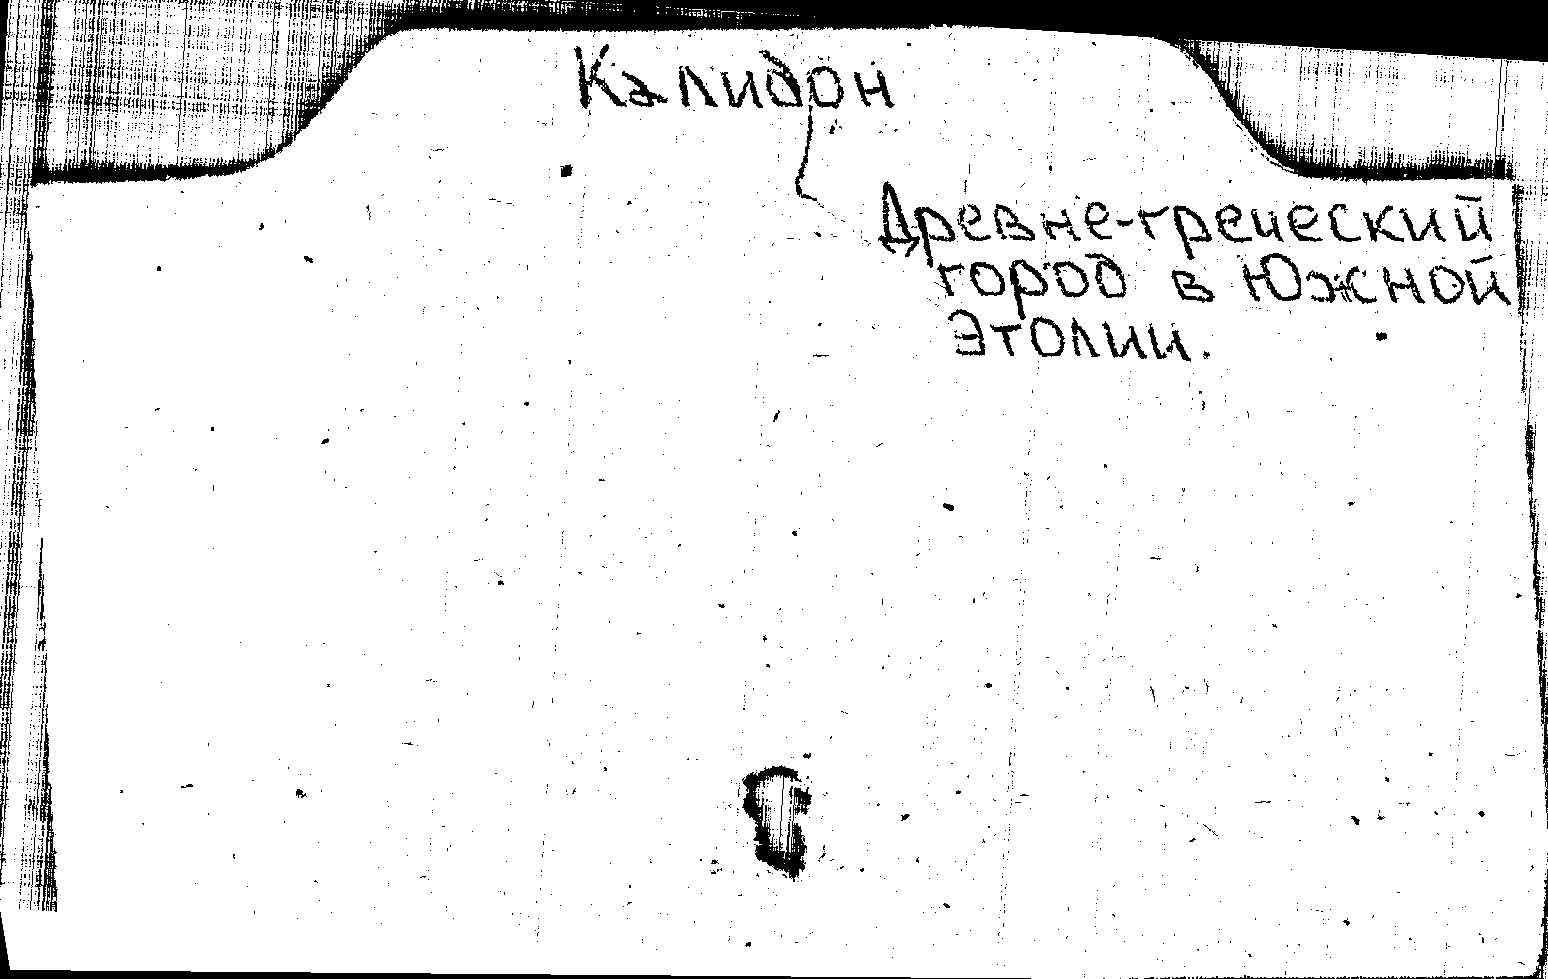 Калидон
Древне-греческий
город в Южной
Этолии.